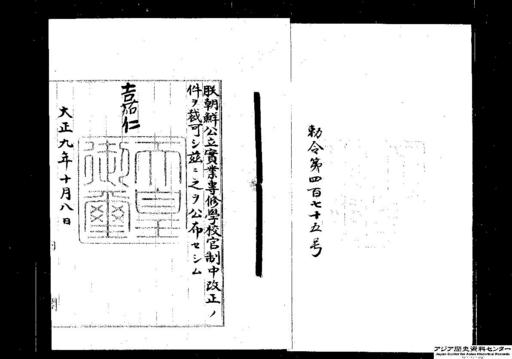 勅令第四百七十五号
朕朝鮮公立實業專修學校官制中改正ノ
件ヲ裁可シ茲ニ之ヲ公布セシム
嘉仁
天皇御璽
大正九年十月八日
アジア歴史資料センター
Japan Center for Asian Historical Records